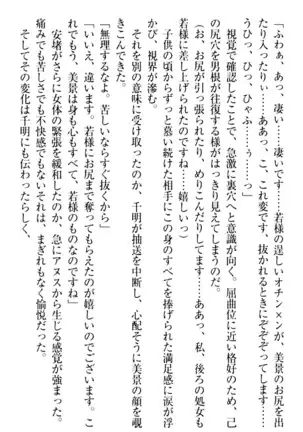 「ふわぁ、あっ、凄い……凄いです……若様の逞しいオチン×ンが、美景のお尻を出
たり入ったりぃ……ああっ、こ、これ変です、抜かれるときにぞぞぞってします……
うひっ、ひっ、ひゃふ……ぅ……っ」
視覚で確認したことで、急激に裏穴へと意識が向く。屈曲位に近い格好のため、己
の尻穴を男根が往復する様がはっきり見えてしまうのだ。
(お、お尻が引っ張られたり、めりこんだりしてます……あっ、私、後ろの処女も
若様に差し上げられたのですね……嬉しいっ)
子供の頃からずっと慕い続けた相手にこの身のすべてを捧げられた満足感に涙が浮
かび、視界が滲む。
それを別の意味に受け取ったのか、千明が抽送を中断し、心配そうに美景の顔を覗
きこんできた。
「無理するなよ。苦しいならすぐ抜くから」
「いいえ、違います。若様にお尻まで奪ってもらえたのが嬉しいのでございます。こ
れでもう、美景は身も心もすべて、若様のものなのですね」
安堵がさらに女体の緊張を緩和したのか、急にアヌスから生じる感覚が強まった。
痛みでも苦しさでも不快感でもない、まぎれもなく愉悦だった。
そしてその変化は千明にも伝わったらしく、